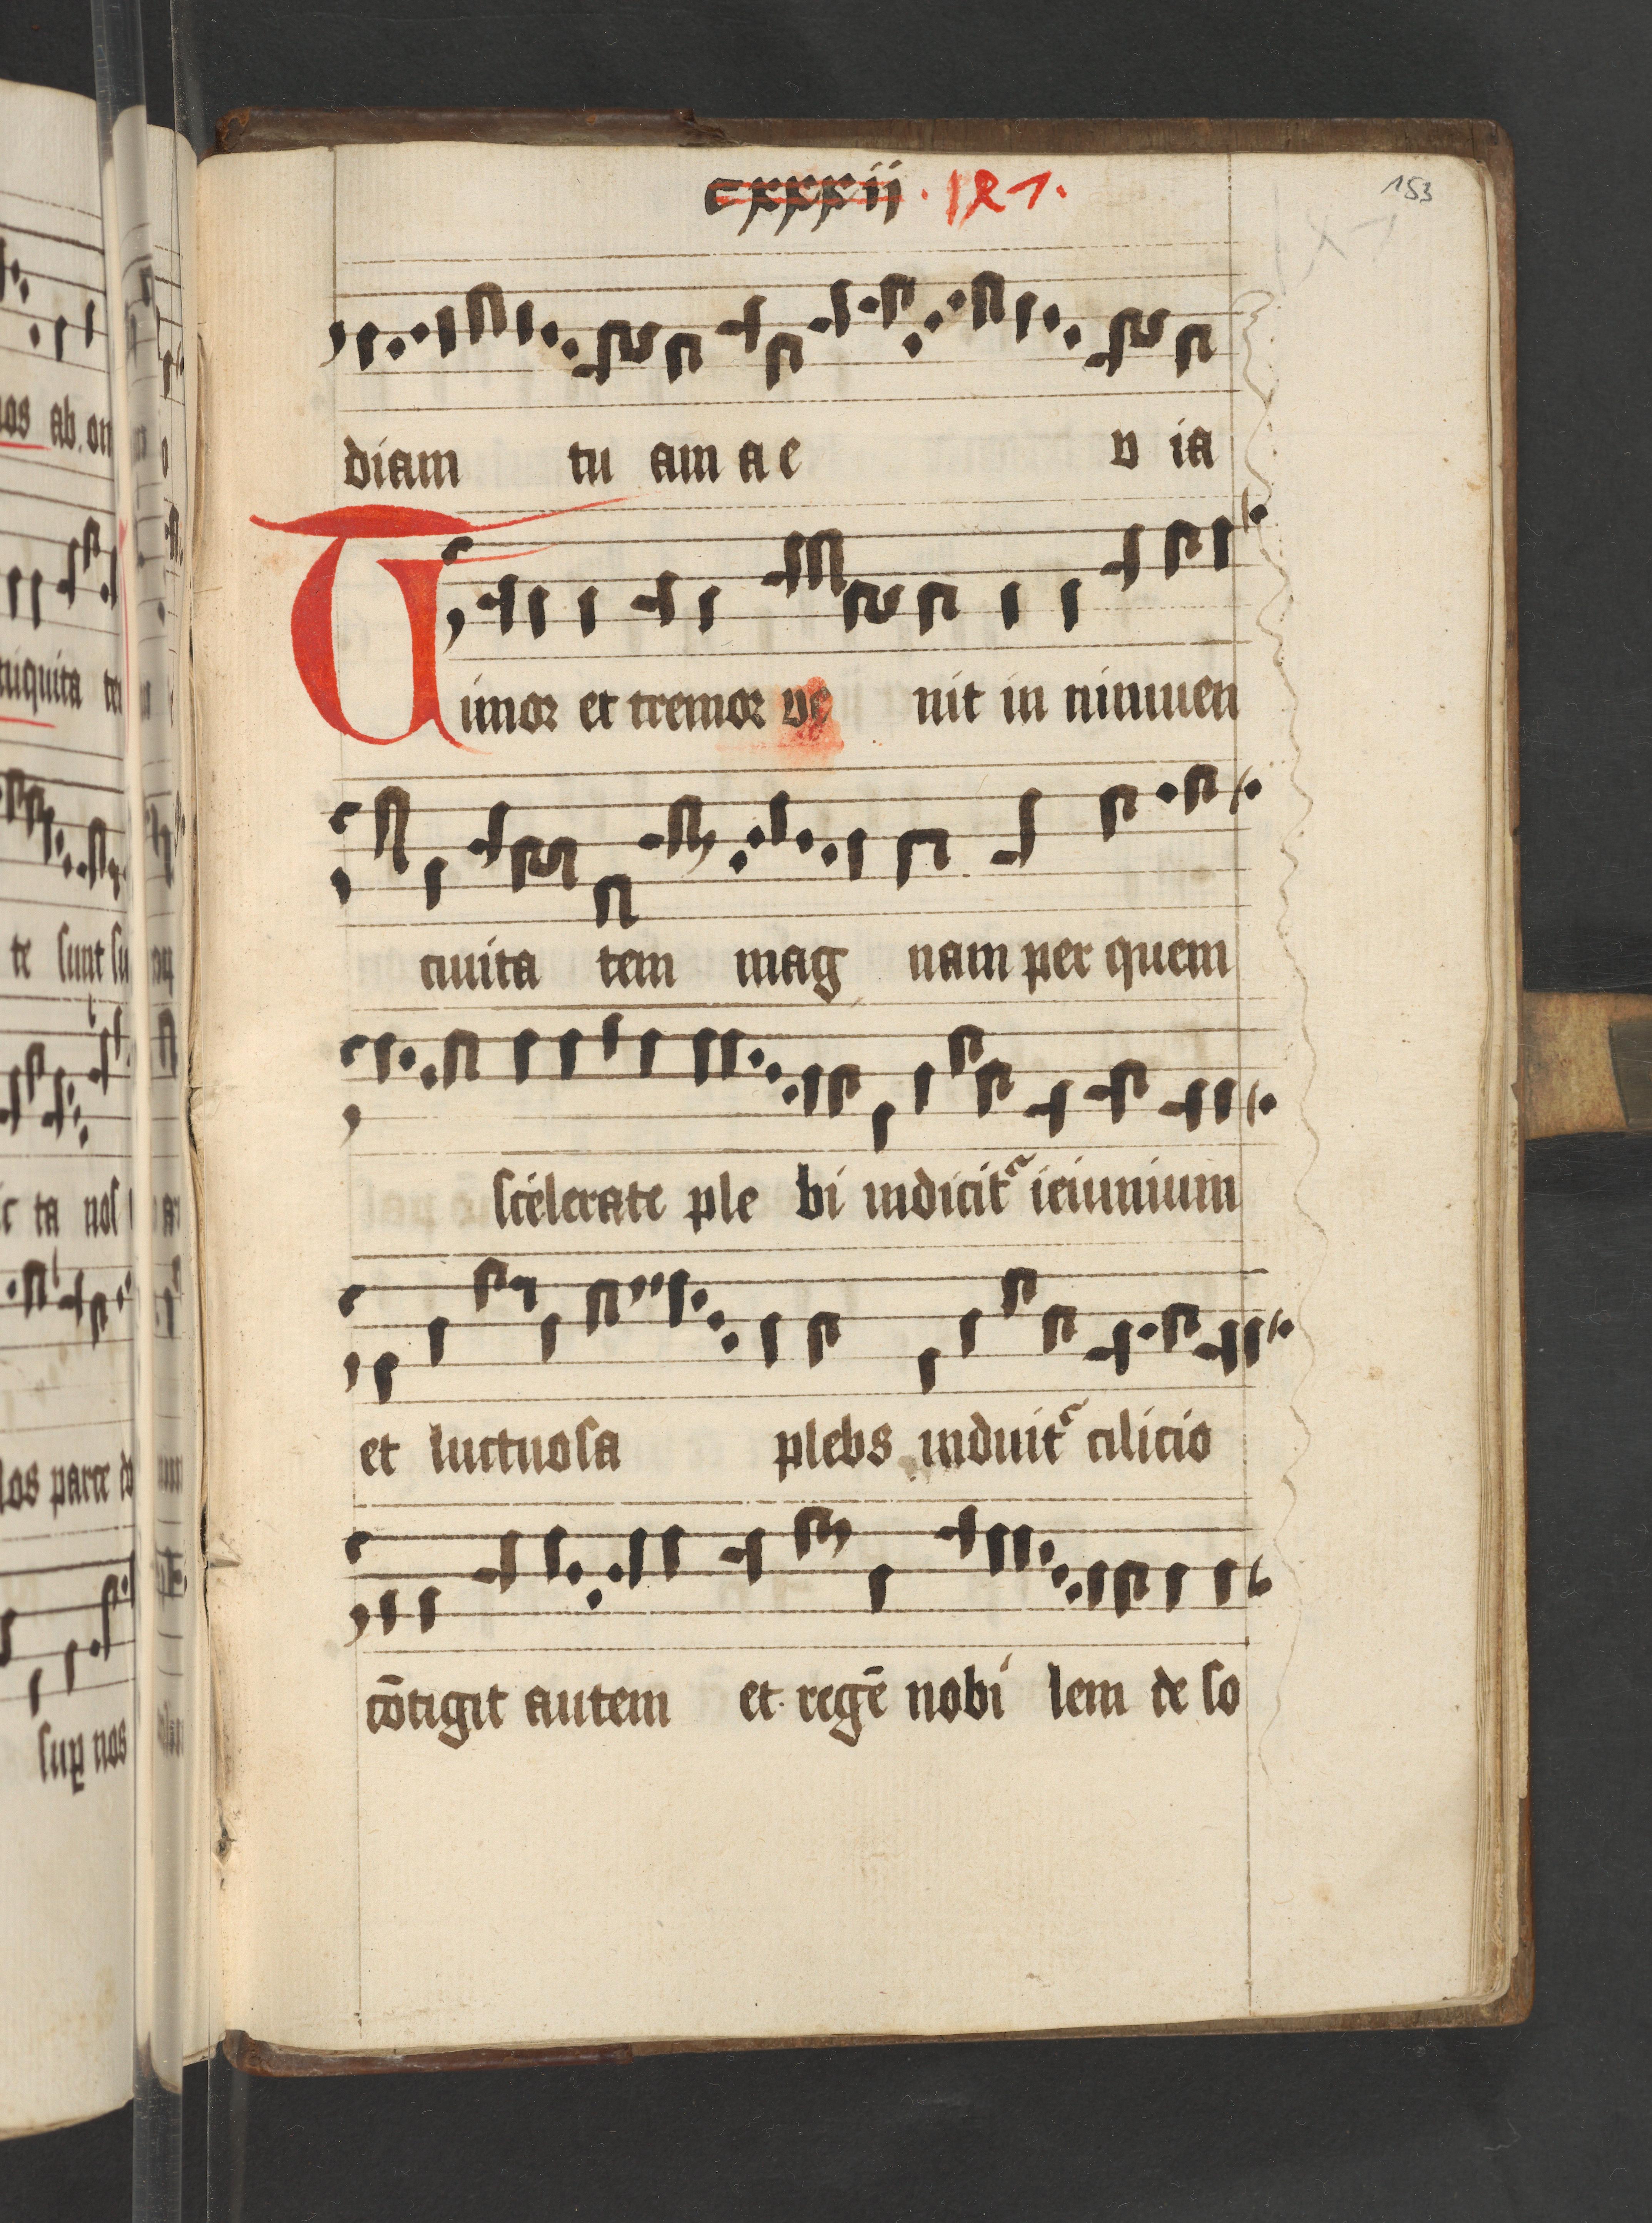 cxxxii · 181 ·
153
diam tu am a e v ia
Timor et tremor ve nit in niniuen
ciuita tem mag nam per quem
scelerate ple bi indicit᷑ ieiunium
et luctuosa plebs induit᷑ cilicio
cōtigit autem et regē nobi lem de so
os ab on
te sunt su
ta nos
los parce
suꝑ nos